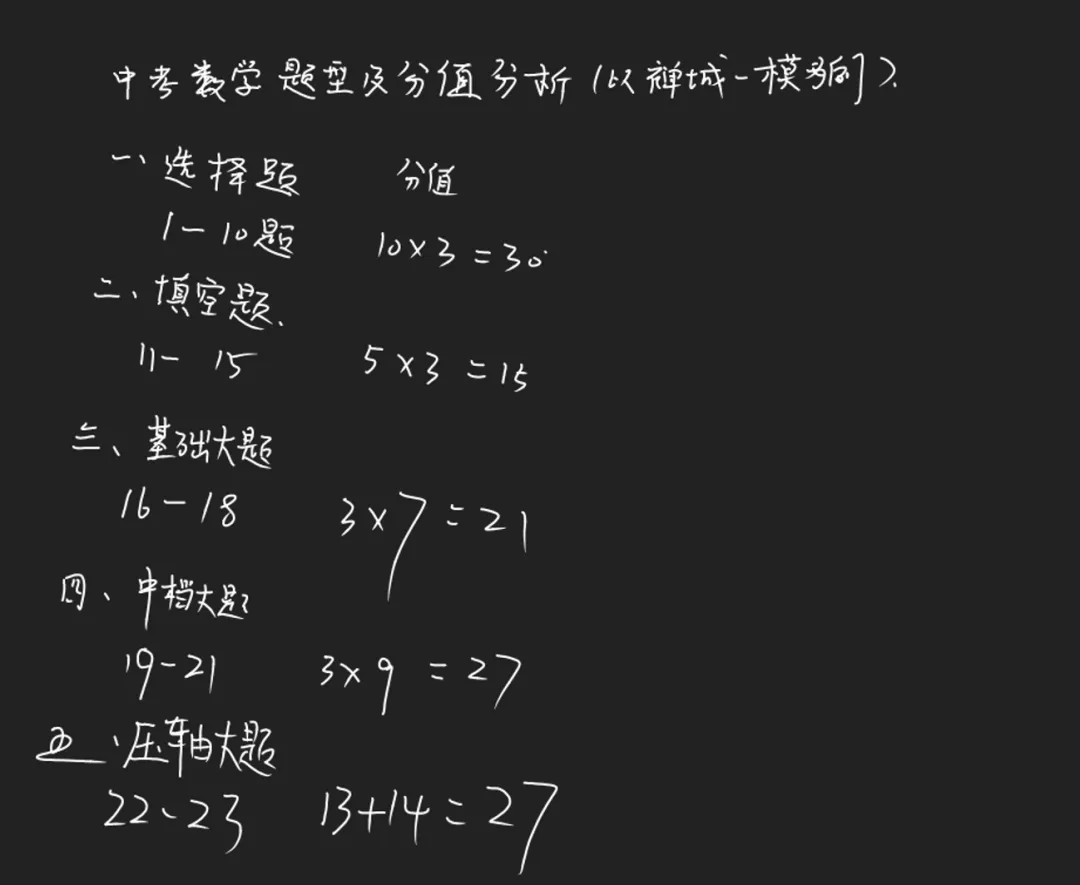 中考数学题型及分值分析(以禅城一模为例).
一、选择题 分值
1-10题 10×3=30
二、填空题.
11-15 5×3=15
三、基础大题
16-18 3×7=21
四、中档大题
19-21 3×9=27
五、压轴大题
22、23 13+14=27